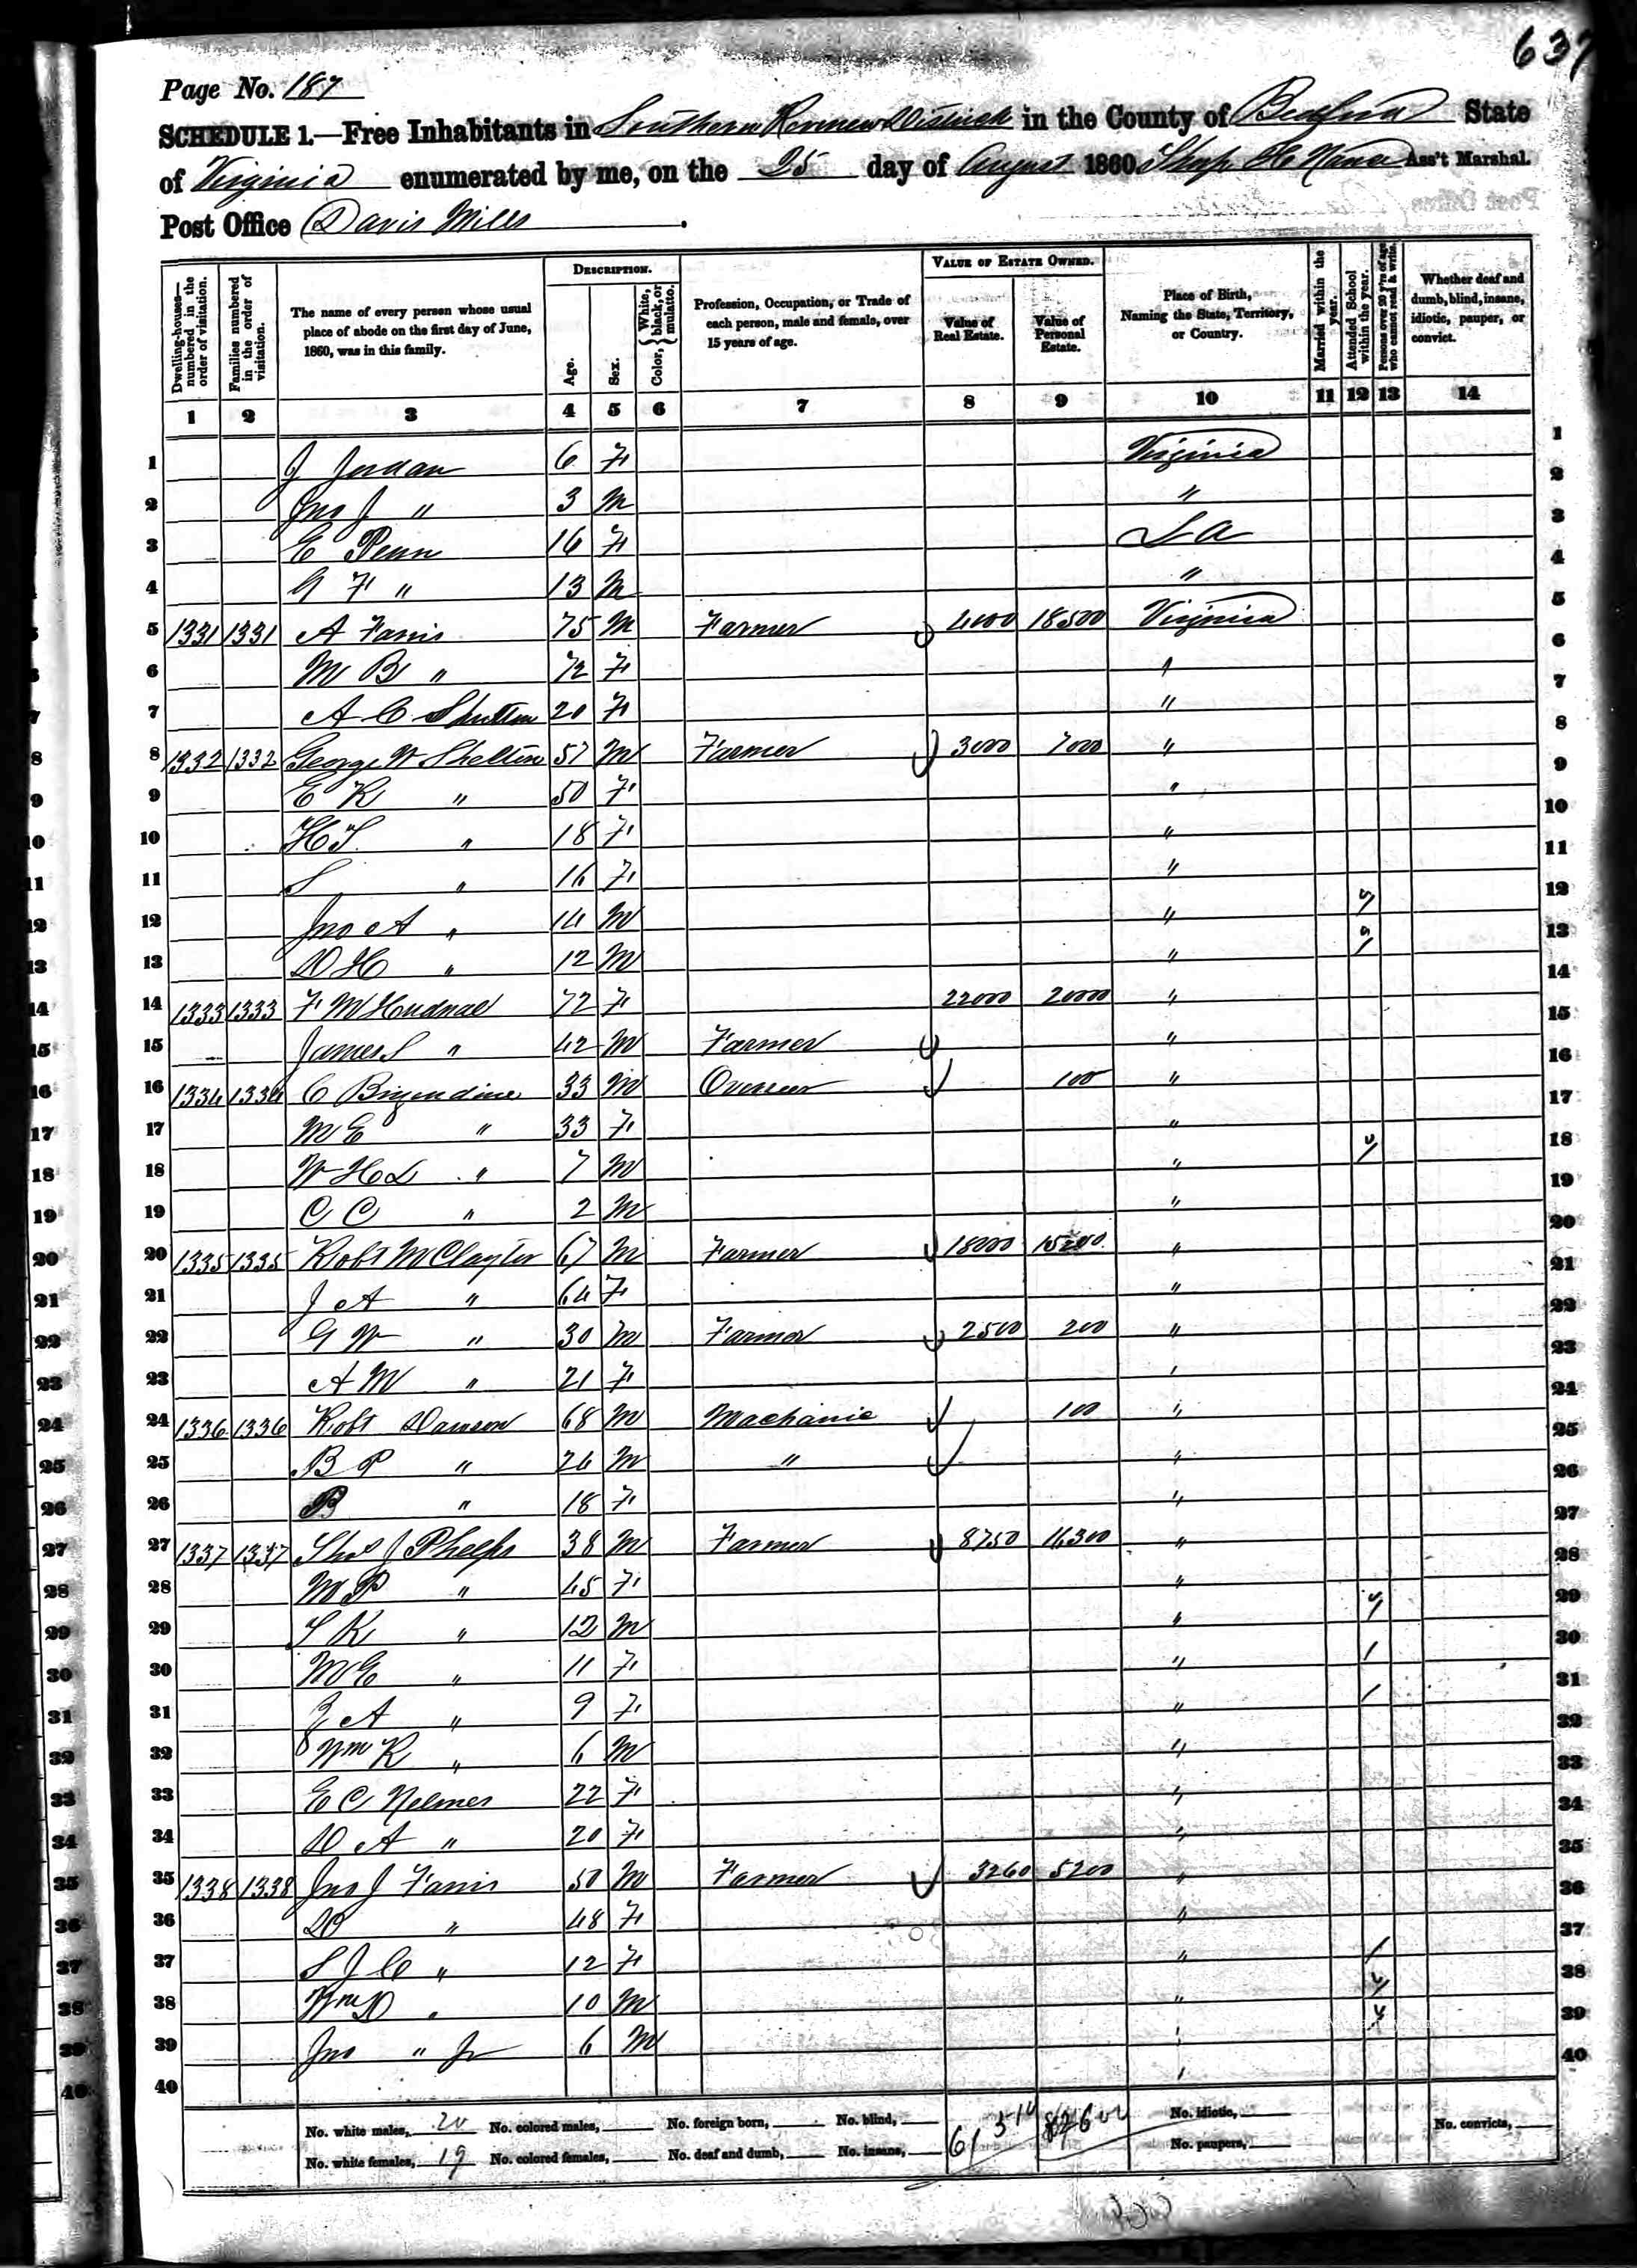 637
Page No. 187
SCHEDULE 1.—Free Inhabitants in Southern Revenew District in the County of Bedford State
of Virginia enumerated by me, on the 25 day of August 1860. Nance Ass't Marshal.
Post Office Davis Mills.
Dwelling-houses—numbered in the order of visitation. Families numbered in the order of visitation. The name of every person whose usual place of abode on the first day of June, 1860, was in this family. DESCRIPTION. Age. Sex. Color, White, black, or mulatto. Profession, Occupation, or Trade of each person, male and female, over 15 years of age. VALUE OF ESTATE OWNED. Value of Real Estate. Value of Personal Estate. Place of Birth, Naming the State, Territory, or Country. Married within the year. Attended School within the year. Persons over 20 y'rs of age who cannot read & write. Whether deaf and dumb, blind, insane, idiotic, pauper, or convict.
1 2 3 4 5 6 7 8 9 10 11 12 13 14
1 J Jordan 6 F Virginia 1
2 Jno J " 3 M " 2
3 E Penn 16 F La 3
4 G F " 13 M " 4
5 1331 1331 A Farris 75 M Farmer 4000 18500 Virginia 5
6 M B " 72 F " 6
7 A C 20 F " 7
8 1332 1332 George W Shelton 57 M Farmer 3000 7000 " 8
9 E K " 50 F " 9
10 H S " 18 F " 10
11 S " 16 F " 11
12 Jno A " 14 M " 12
13 D H " 12 M " 13
14 1333 1333 F M Hudnall 72 F 22000 20000 " 14
15 James S " 42 M Farmer " 15
16 1334 1334 C Brizendine 33 M Overseer 100 " 16
17 M E " 33 F " 17
18 W H L " 7 M " 18
19 C C " 2 M " 19
20 1335 1335 Robt M Claytor 67 M Farmer 18000 " 20
21 J A " 64 F " 21
22 G W " 30 M Farmer 2500 200 " 22
23 A M " 21 F " 23
24 1336 1336 Robt Dawson 68 M Machanic 100 " 24
25 B P " 24 M " " 25
26 B " 18 F " 26
27 1337 1337 Thos J Phelps 38 M Farmer 8750 " 27
28 M P " 45 F " 28
29 S K " 12 M " 29
30 M E " 11 F " / 30
31 Z A " 9 F " / 31
32 Wm R " 6 M " 32
33 E C Nelmes 22 F " 33
34 D A " 20 F " 34
35 1338 1338 Jno J Farris 50 M Farmer 3260 5200 " 35
36 D " 48 F " 36
37 S J C " 12 F " / 37
38 Wm D " 10 M " 38
39 Jno " Jr 6 M " 39
40 40
No. white males, 20 No. colored males, No. foreign born, No. blind, 61510 No. idiotic, No. convicts,
No. white females, 19 No. colored females, No. deaf and dumb, No. insane, No. paupers,